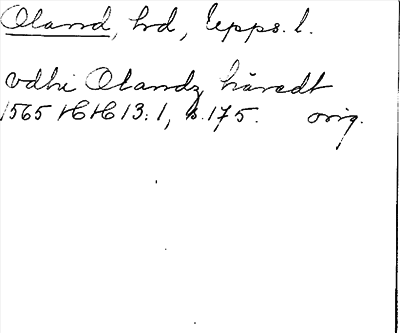 Oland, hd, Upps. l.
vdhi Olandz häradt
1565 HH 13:1, s. 175. orig.